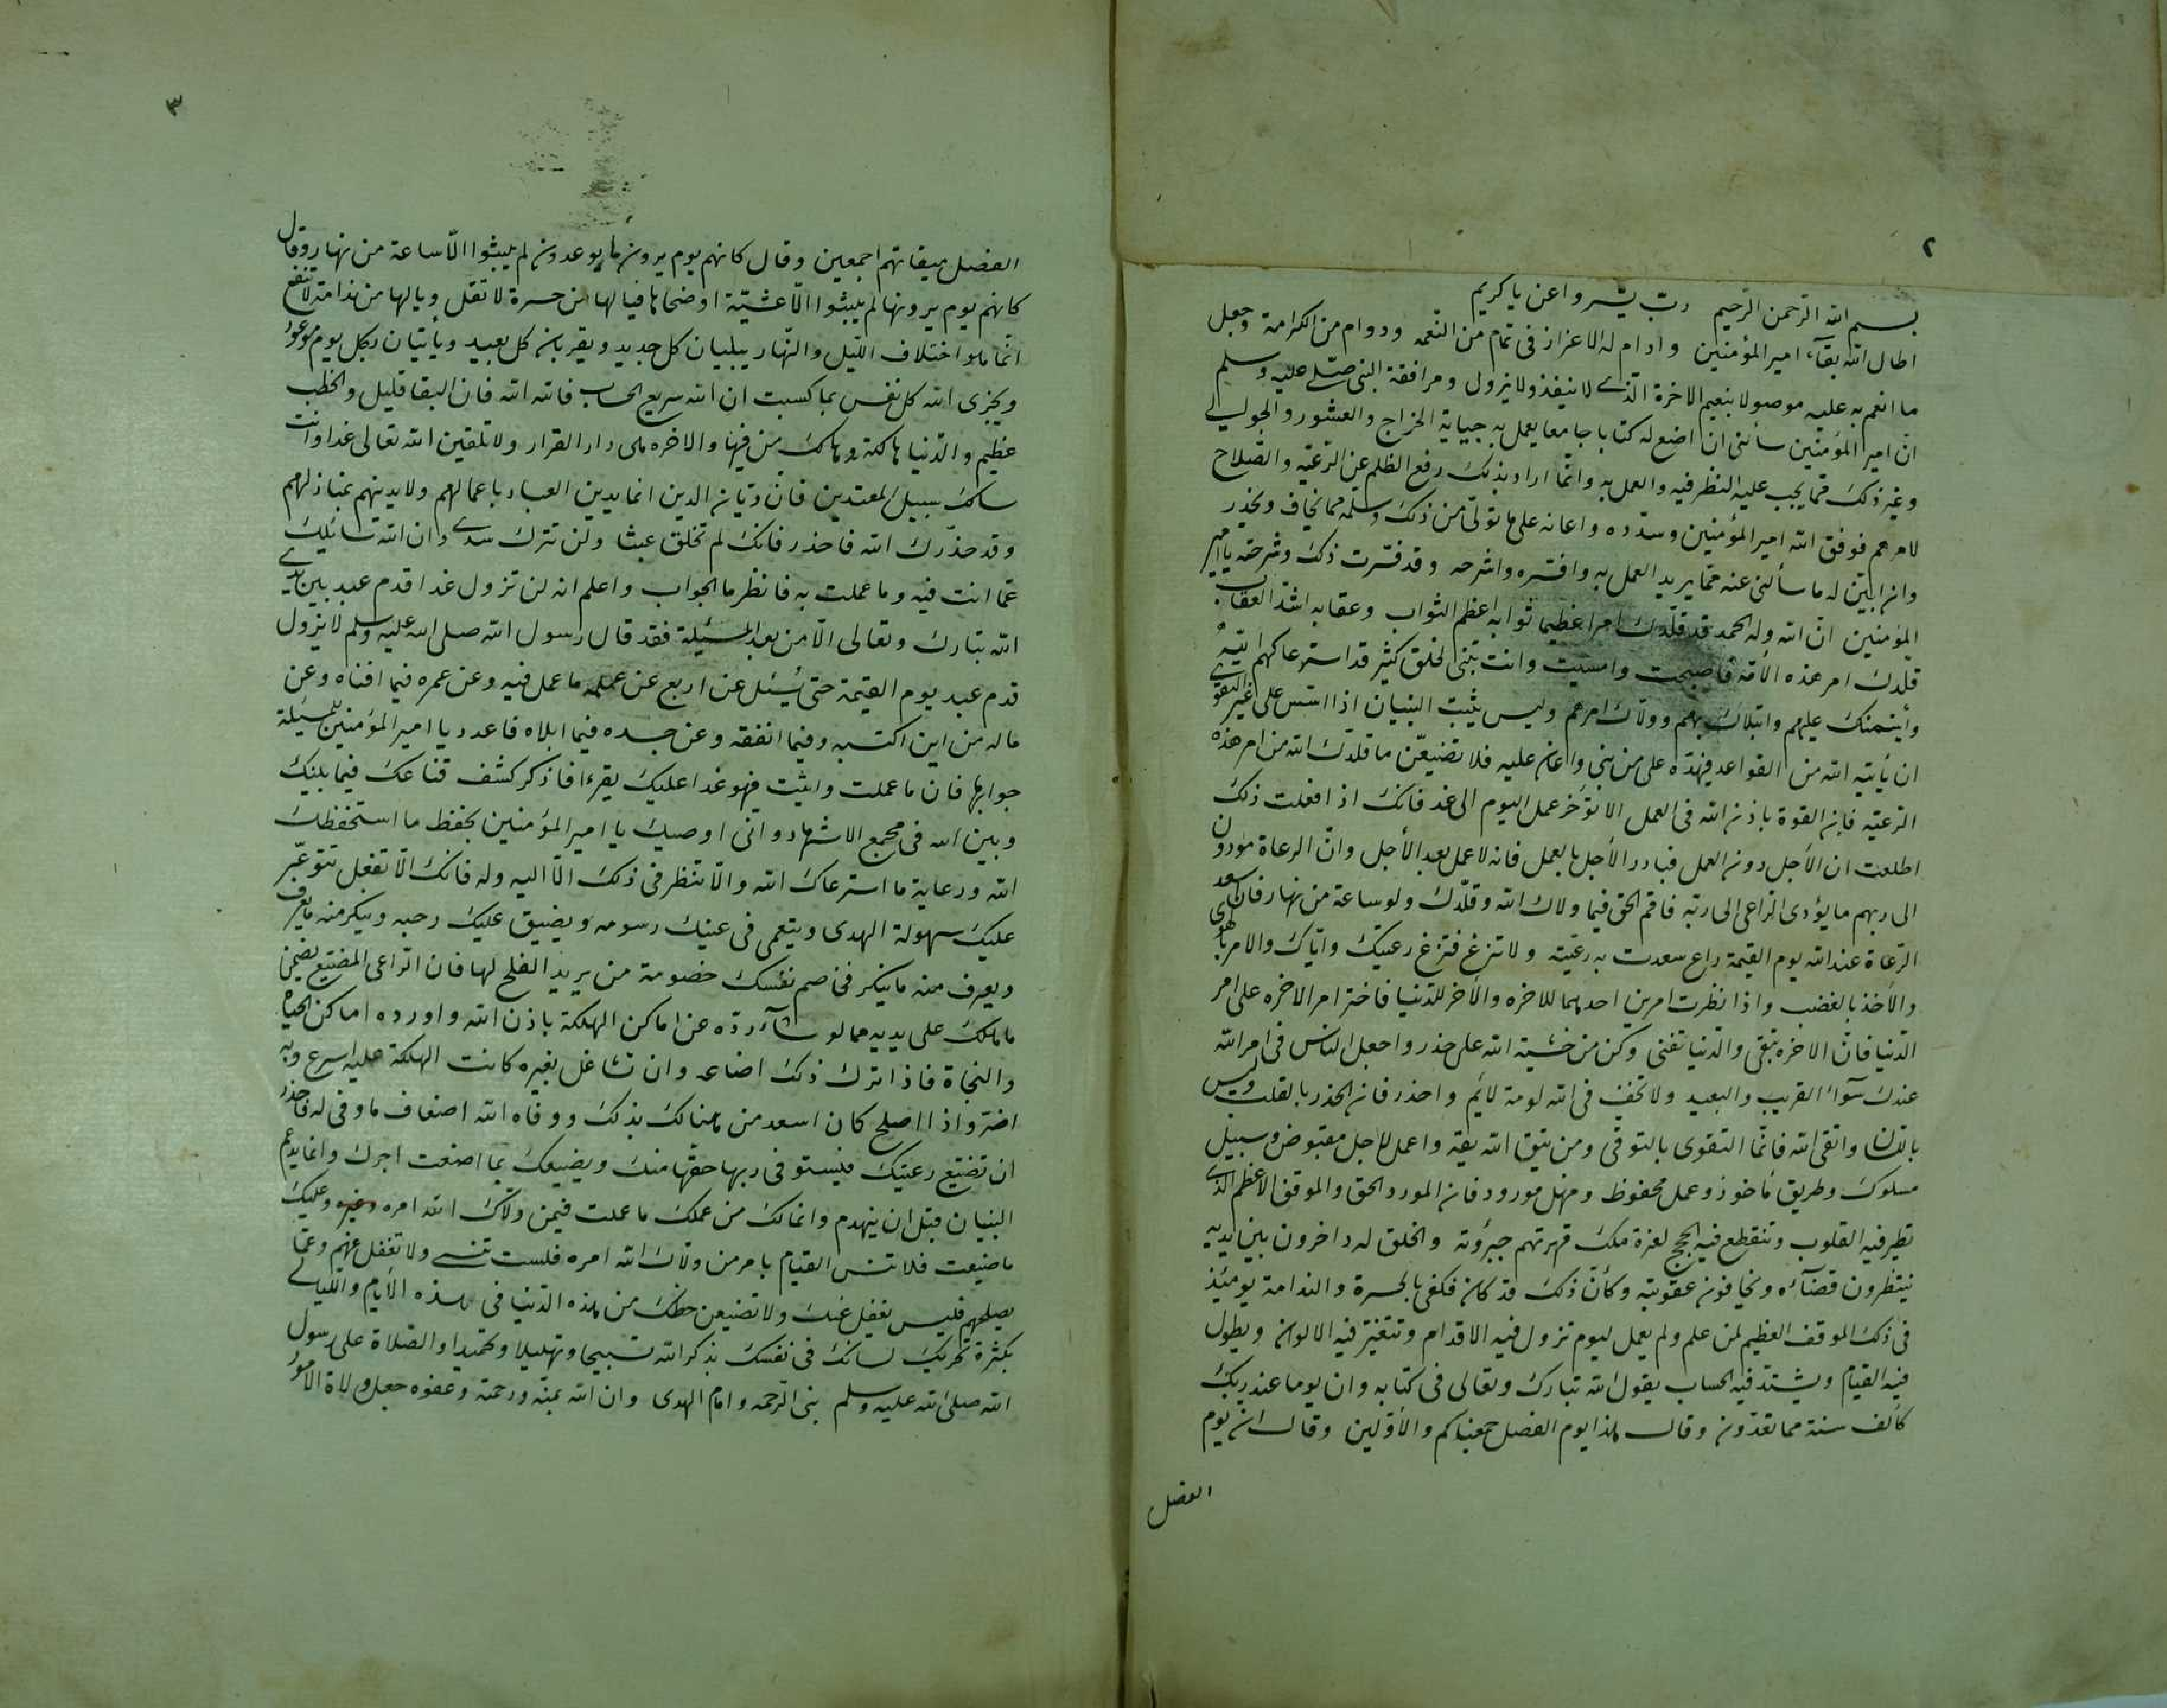 ٢
بسم الله الرحمن الرحيم رب يسر واعن يا كريم
اطال الله بقآء امير المؤمنين وادام له الاعزاز فى تمام من النعمه ودوام من الكرامة وجعل
ما انعم به عليه موصولا بنعيم الاخرة الذى لا ينفذ ولا يزول ومرافقة النبى صلى عليه وسلم
انّ امير المؤمنين سألنى ان اضع له كتابا جامعا يعمل به جباية الخراج والعشور والجوالى
وغير ذلك ممّا يجب عليه النظر فيه والعمل به وانّما اراد بذلك رفع الظلم عن الرعيّه والصّلاح
لامرهم فوفق الله امير المؤمنين وسدّده واعانه على ما تولّى من ذلك وسلّمه مما يخاف ويحذر
وان ابيّن له ما سألنى عنه ممّا يريد العمل به وافسّره واشرحه وقد فسّرت ذلك وشرحته يا امير
المؤمنين انّ الله وله الحمد قد قلّدك امرا عظيما ثوابه اعظم الثواب وعقابه اشدّ العقاب
قلّدك امر هذه الامّة فاصبحت وامسيت وانت تبنى لخلق كثير قد استرعاكهم الله
وأيتمنك عليهم وابتلاك بهم وولّاك امرهم وليس يثبت البنيان اذا اسّس على غير التقوى
ان يأتيه الله من القواعد فيهدّه على من بنى واعان عليه فلا تضيّعن ما قلدّك الله من امر هذه
الرّعيّه فان القوة باذن الله فى العمل الا تؤخر عمل اليوم الى غد فانك اذا فعلت ذلك
اطلعت ان الاجل دون العمل فبادر الأجل بالعمل فانه لا عمل بعد الأجل وانّ الرعاة مؤدون
الى ربهم ما يؤدى الراعى الى ربّه فاقم الحق فيما ولاك الله وقلّدك ولو ساعة من نهار فان اسعد
الرّعاة عند الله يوم القيمة راع سعدت به رعيّته ولا تزغ فتزغ رعيتك وايّاك والامر بالهوى
والاخذ بالغضب واذا نظرت امرين احدهما للاخره والاخر للدّنيا فاختر امر الاخره على امر
الدّنيا فانّ الاخره تبقى والدّنيا تفنى وكن من خشية الله على حذر واجعل الناس فى امر الله
عندك سوآء القريب والبعيد ولا تخف فى الله لومة لائم واحذر فان الحذر بالقلب وليس
باللسان واتقى الله فانّما التقوى بالتوقّى ومن يتق الله يقه واعمل لاجل مقبوض وسبيل
مسلوك وطريق مأخوذ وعمل محفوظ ومنهل مورود فان المورد الحق والموقف الاعظم الذى
تطير فيه القلوب وتنقطع فيه الحجج لعزة ملك قهرتهم جبروته والخلق له داخرون بين يديه
ينتظرون قضآئه ويخافون عقوبته وكأنّ ذلك قد كان فكفى بالحسرة والندامة يومئذ
فى ذلك الموقف العظيم لمن علم ولم يعمل ليوم تزول فيه الاقدام وتتغيّر فيه الالوان ويطول
فيه القيام ويشتد فيه الحساب يقول الله تبارك وتعالى فى كتابه وان يوما عند ربك
كألف سنة مما تعدّون وقال هذا يوم الفصل جمعناكم والاوّلين وقال ان يوم
الفصل
٣
الفصل ميقاتهم اجمعين وقال كانهم يوم يرون ما يوعدون لم يلبثوا الّا ساعة من نهار وقال
كانهم يوم يرونها لم يلبثوا الّا عشيّة او ضحاها فيالها من حسرة لا تقل ويالها من ندامة لا تنفع
انّما هو اختلاف الليل والنّهار يبليان كل جديد ويقربان كل بعيد ويأتيان بكل يوم موعود
ويجزى الله كل نفس بما كسبت ان الله سريع الحساب فالله الله فان البقا قليل والخطب
عظيم والدّنيا هالكة وهالك من فيها والاخره هى دار القرار ولا تلقين الله تعالى غدا وانت
سالك سبيل المعتدين فان ديّان الدين انما يدين العباد باعمالهم ولا يدينهم بمنازلهم
وقد حذّرك الله فاحذر فانك لم تخلق عبثا ولن تترك سدى وان الله سائلك
عمّا انت فيه وما عملت به فانظر ما الجواب واعلم انه لن تزول غدا قدم عبد بين يدى
الله تبارك وتعالى الّا من بعد المسئلة فقد قال رسول الله صلى الله عليه وسلم لا تزول
قدم عبد يوم القيمة حتى يُسئل عن اربع عن علمه ما عمل فيه وعن عمره فيما افناه وعن
ماله من اين اكتسبه وفيما انفقه وعن جسده فيما ابلاه فاعدد يا امير المؤمنين للمسئلة
جوابها فان ما عملت واثبت فهو غدا عليك يقرءا فاذكر كشف قناعك فيما بينك
وبين الله فى مجمع الاشهاد وانّى اوصيك يا امير المؤمنين بحفظ ما استحفظك
الله ورعاية ما استرعاك الله والّا تنظر فى ذلك الّا اليه وله فانك الّا تفعل تتوعّر
عليك سهولة الهدى ويتعمى فى عينك رسومه ويضيق عليك رحبه وينكر منه ما يعرف
ويعرف منه ما ينكر فخاصم نفسك خصومة من يريد الفلج لها فان الراعى المضيّع يضمن
ما هلك على يديه مما لو شآء ردّه عن اماكن الهلكة باذن الله واورده اماكن الحياة
والنجاة فاذا ترك ذلك اضاعه وان تشاغل بغيره كانت الهلكة عليه اسرع وبه
اضرّ واذا اصلح كان اسعد من هنالك بذلك ووفاه الله اضعاف ما وفى له فاحذر
ان تضيّع رعيتك فيستوفى ربها حقّها منك ويضيعك بما اضعت اجرك وانما يدعم
البنيان قبل ان ينهدم وانما لك من عملك ما عملت فيمن ولّاك الله امره وعليك
ما ضيعت فلا تنس القيام بامر من ولّاك الله امره فلست تنسى ولا تغفل عنهم وعمّا
يصلحهم فليس يغفل عنك ولا تضيعن حظك من هذه الدّنيا فى هذه الأيام والليالى
بكثرة تحريك لسانك فى نفسك بذكر الله تسبيحا وتهليلا وتحميدا والصّلاة على رسول
الله صلى الله عليه وسلم نبى الرّحمه وامام الهدى وان الله بمنّه ورحمته وعفوه جعل ولاة الامور